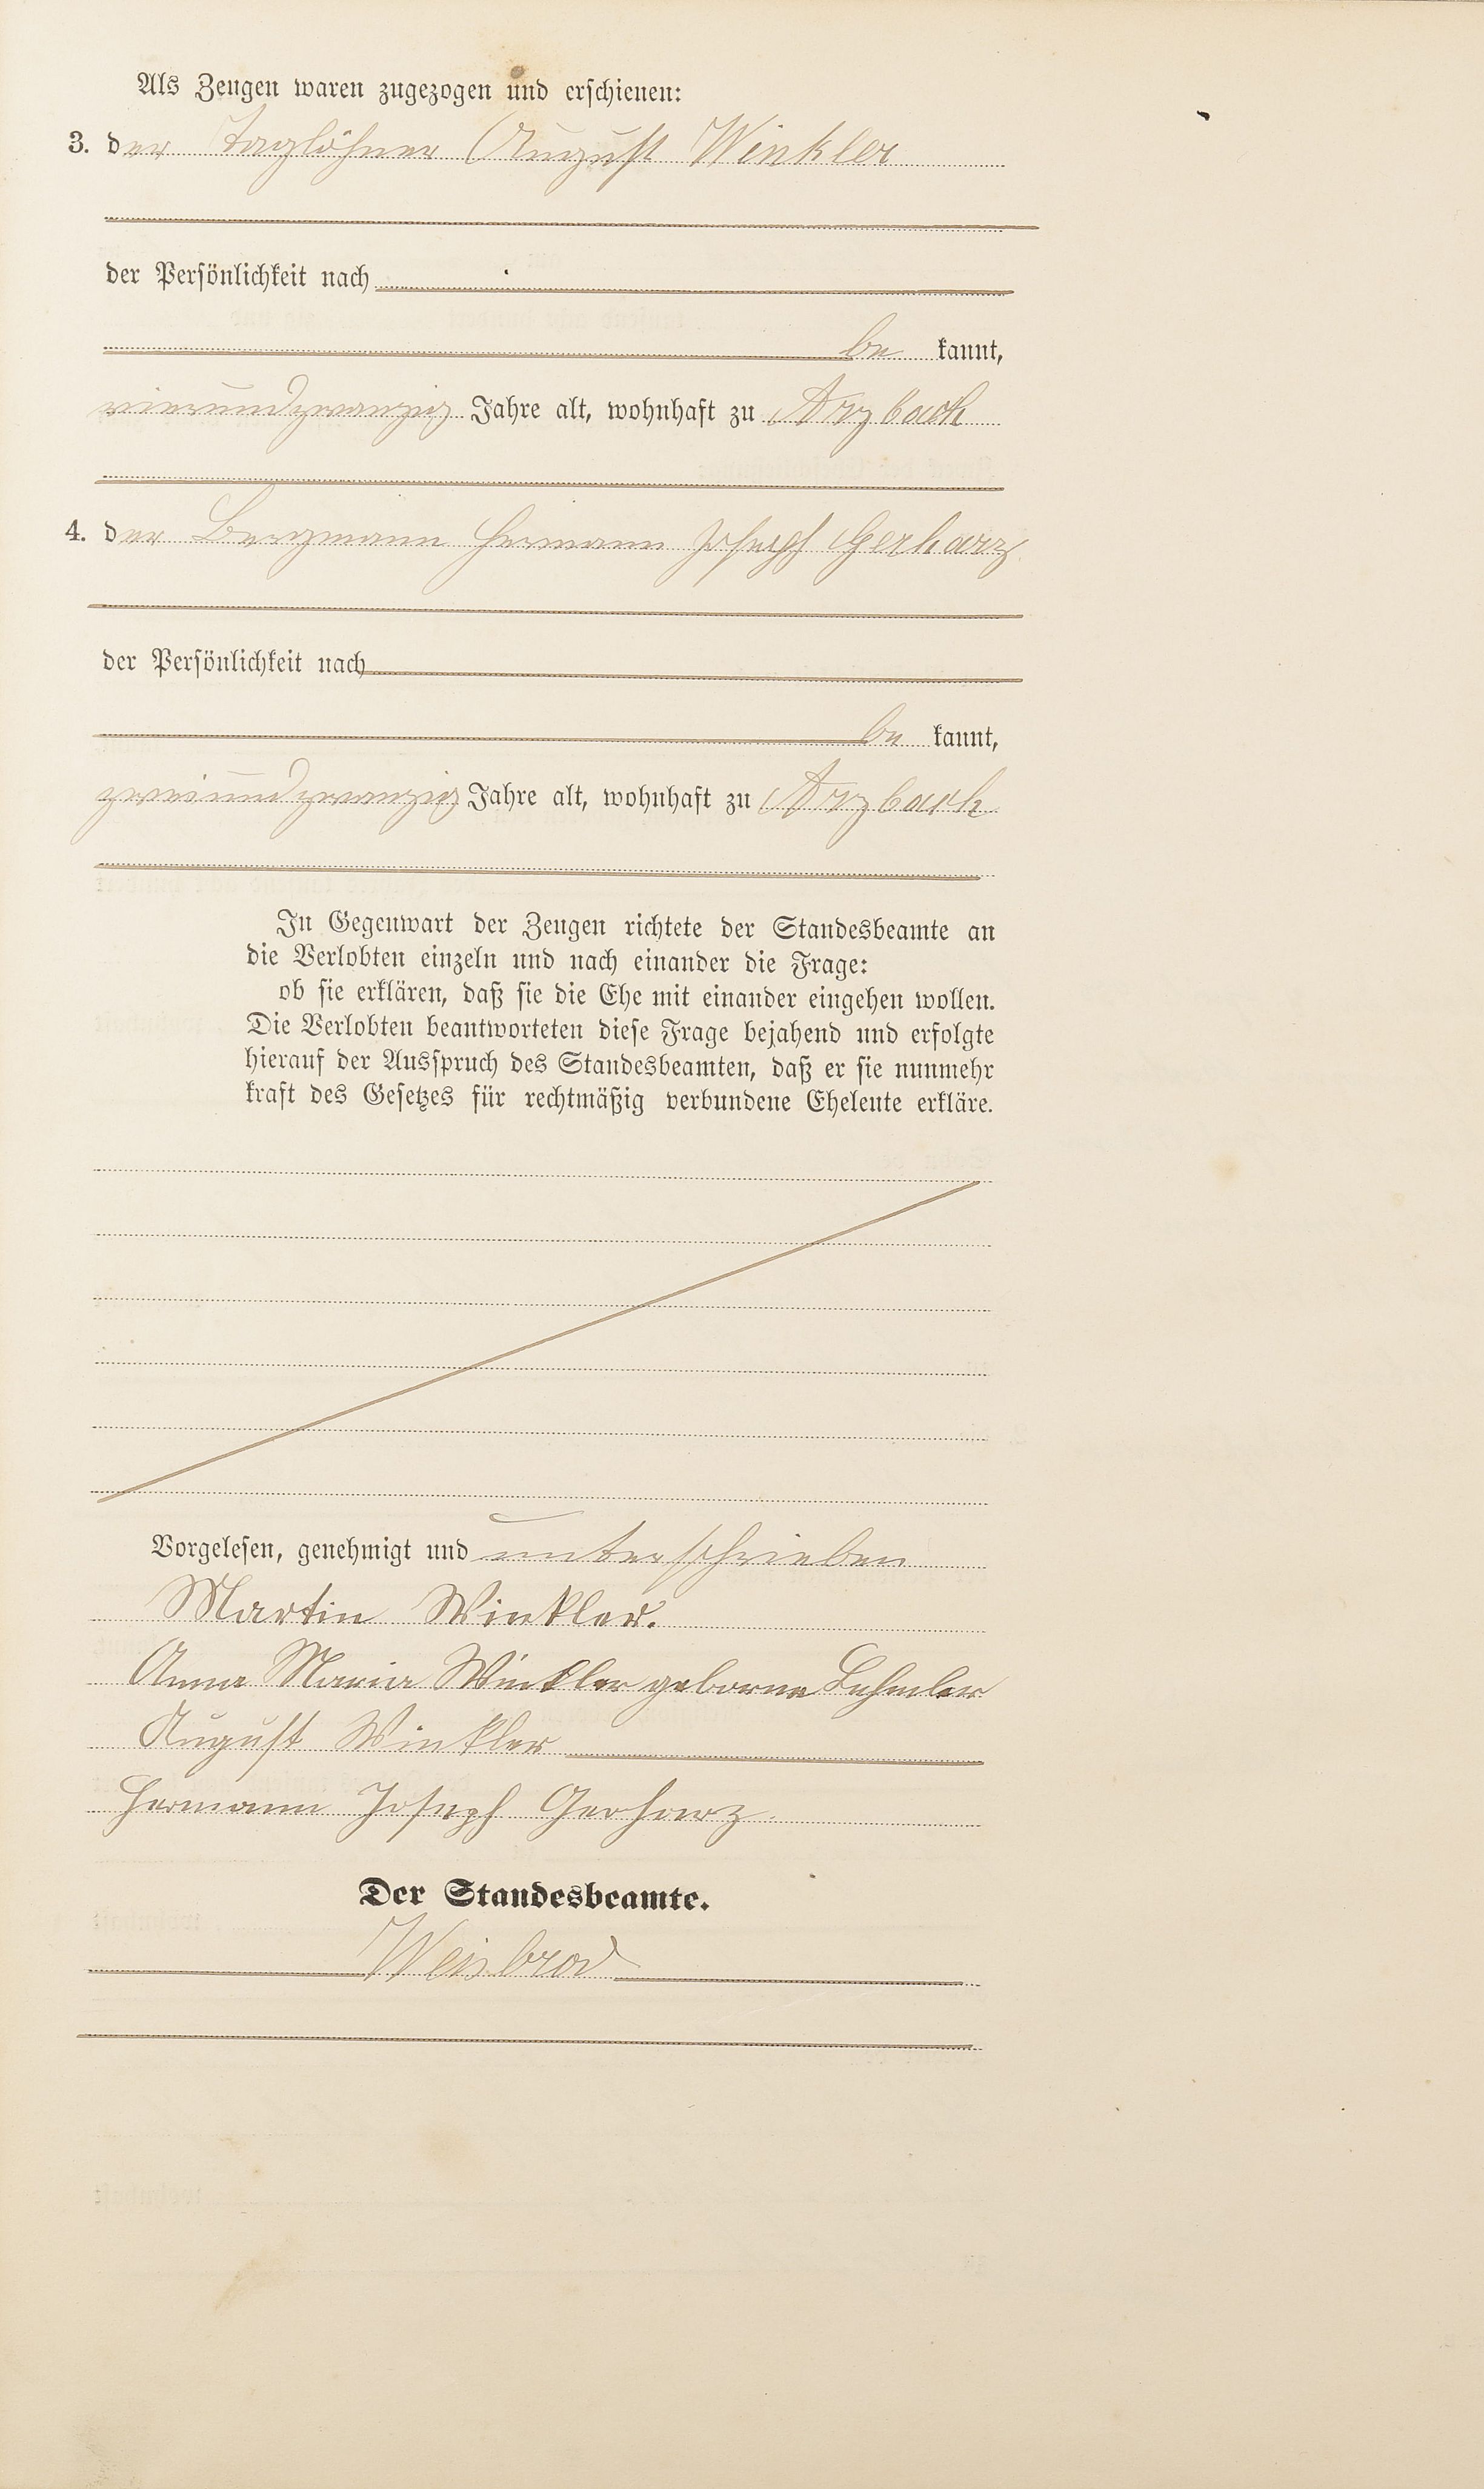 Als Zeugen waren zugezogen und erschienen:
3. der Taglöhner August Winkler
der Persönlichkeit nach
be kannt,
vierundzwanzig Jahre alt, wohnhaft zu Arzbach
4. der Bergmann Hermann Joseph Gerharz
der Persönlichkeit nach
be kannt,
zweiundzwanzig Jahre alt, wohnhaft zu Arzbach
In Gegenwart der Zeugen richtete der Standesbeamte an
die Verlobten einzeln und nach einander die Frage:
ob sie erklären, daß sie die Ehe mit einander eingehen wollen.
Die Verlobten beantworteten diese Frage bejahend und erfolgte
hierauf der Ausspruch des Standesbeamten, daß er sie nunmehr
kraft des Gesetzes für rechtmäßig verbundene Eheleute erkläre.
Vorgelesen, genehmigt und unterschrieben
Martin Winkler.
Anna Maria Winkler geborne
August Winkler
Hermann Joseph Gerharz
Der Standesbeamte.
Weisbrod